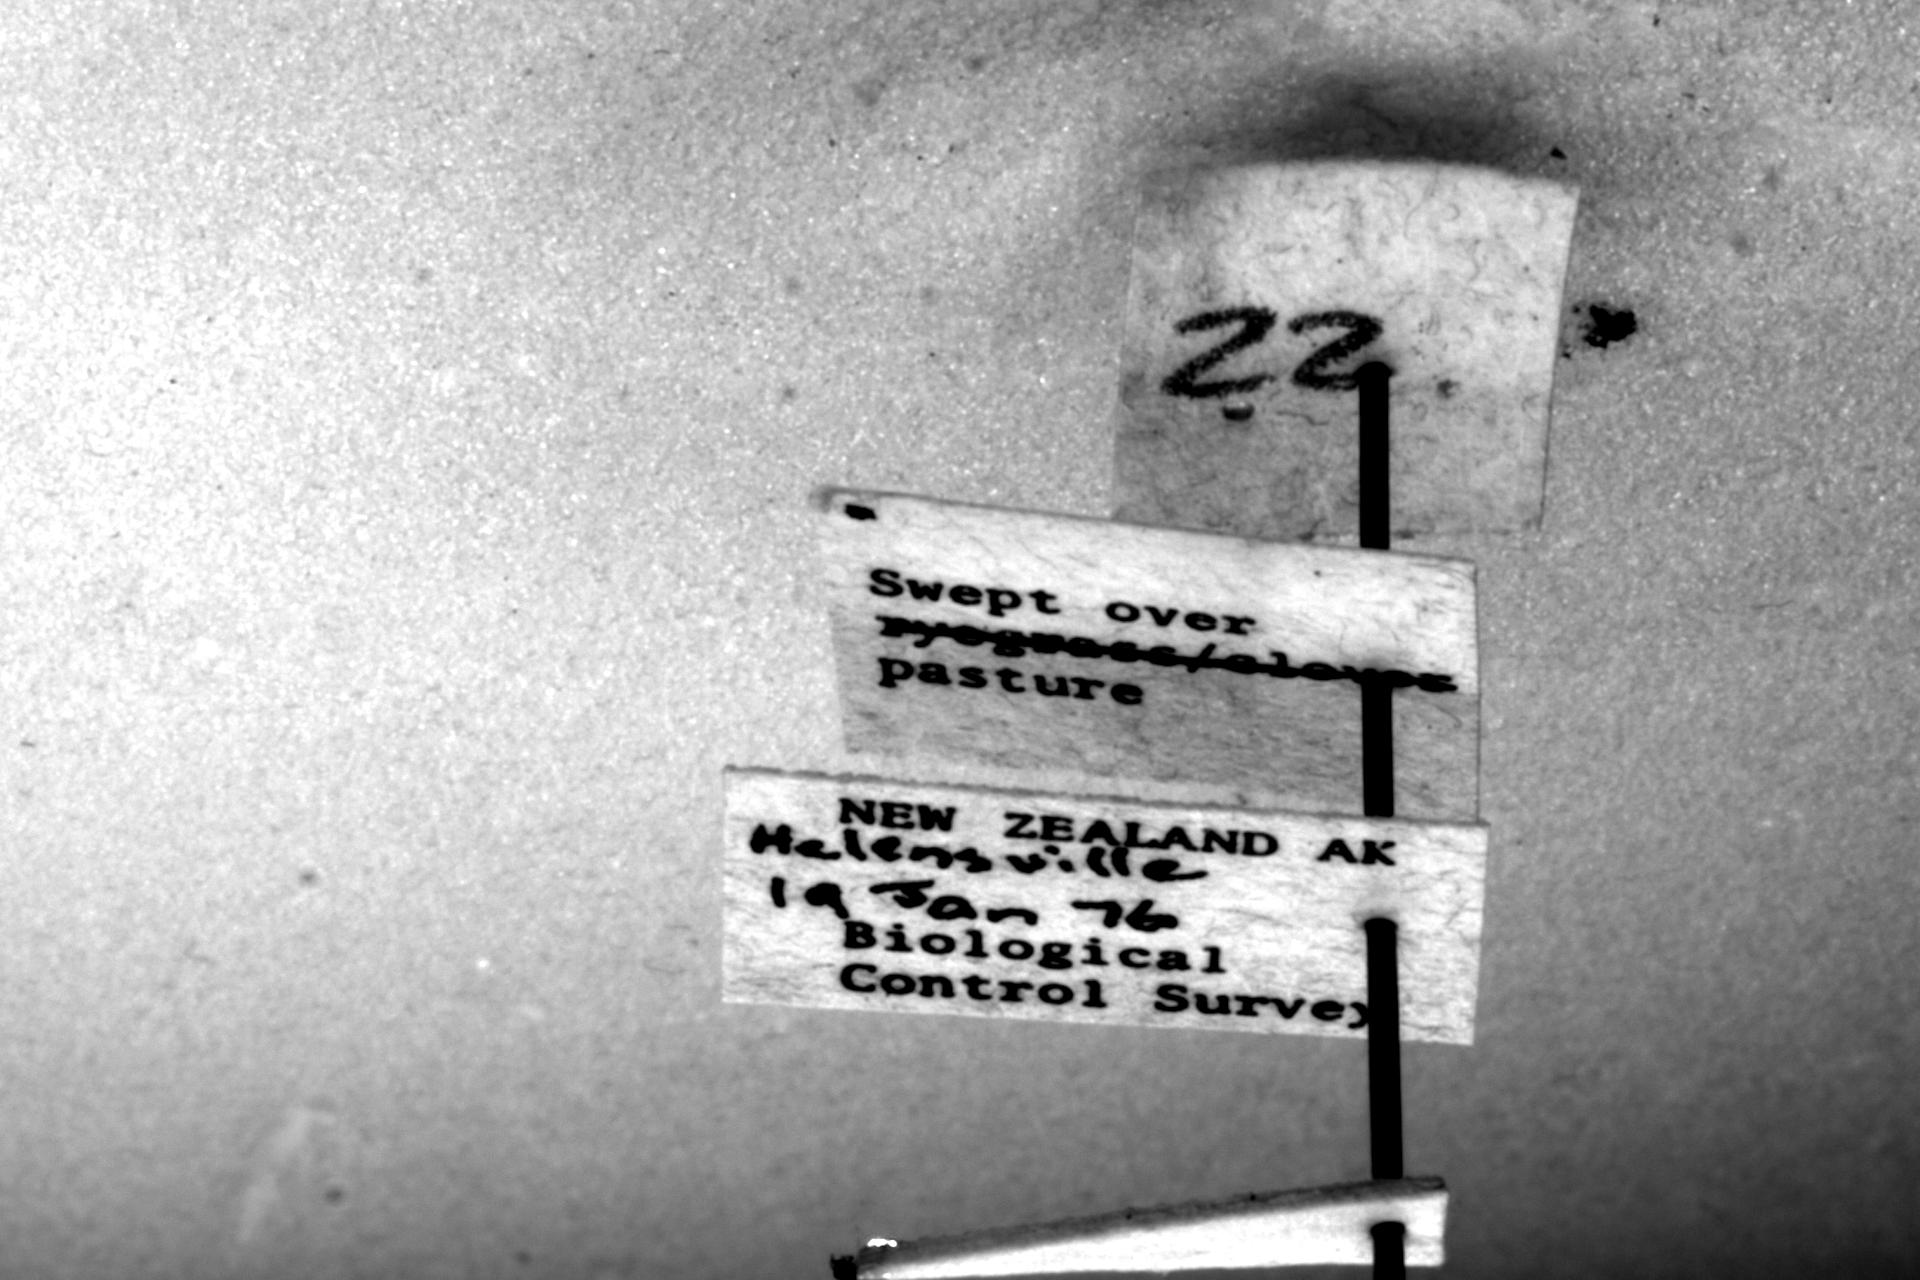 22
Swept over
ryegrass/clover
pasture
NEW ZEALAND AK
Helensville
19 Jan 76
Biological
Control Survey